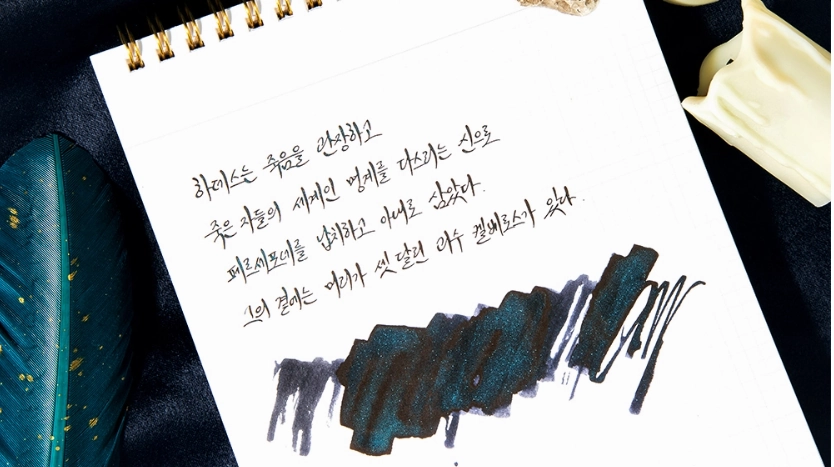 하데스는 죽음을 관장하고
죽은 자들의 세계인 명계를 다스리는 신으로
페르세포네를 납치하고 아내로 삼았다.
그의 곁에는 머리가 셋 달린 괴수 켈베로스가 있다.